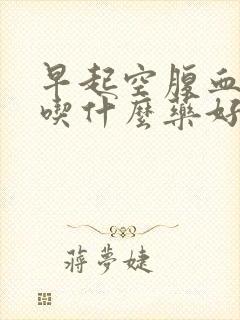 早起空腹血
喫什麼藥好
蔣夢婕